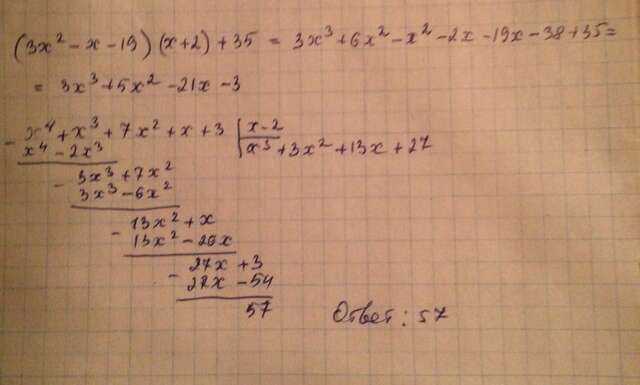 (3x² - x - 19)(x+2) + 35 = 3x³ + 6x² - x² - 2x - 19x - 38 + 35 =
= 3x³ + 5x² - 21x - 3
- x⁴ + x³ + 7x² + x + 3 | x - 2
x⁴ - 2x³ x³ + 3x² + 13x + 27
- 3x³ + 7x²
3x³ - 6x²
- 13x² + x
13x² - 26x
- 27x + 3
27x - 54
57
Ответ: 57